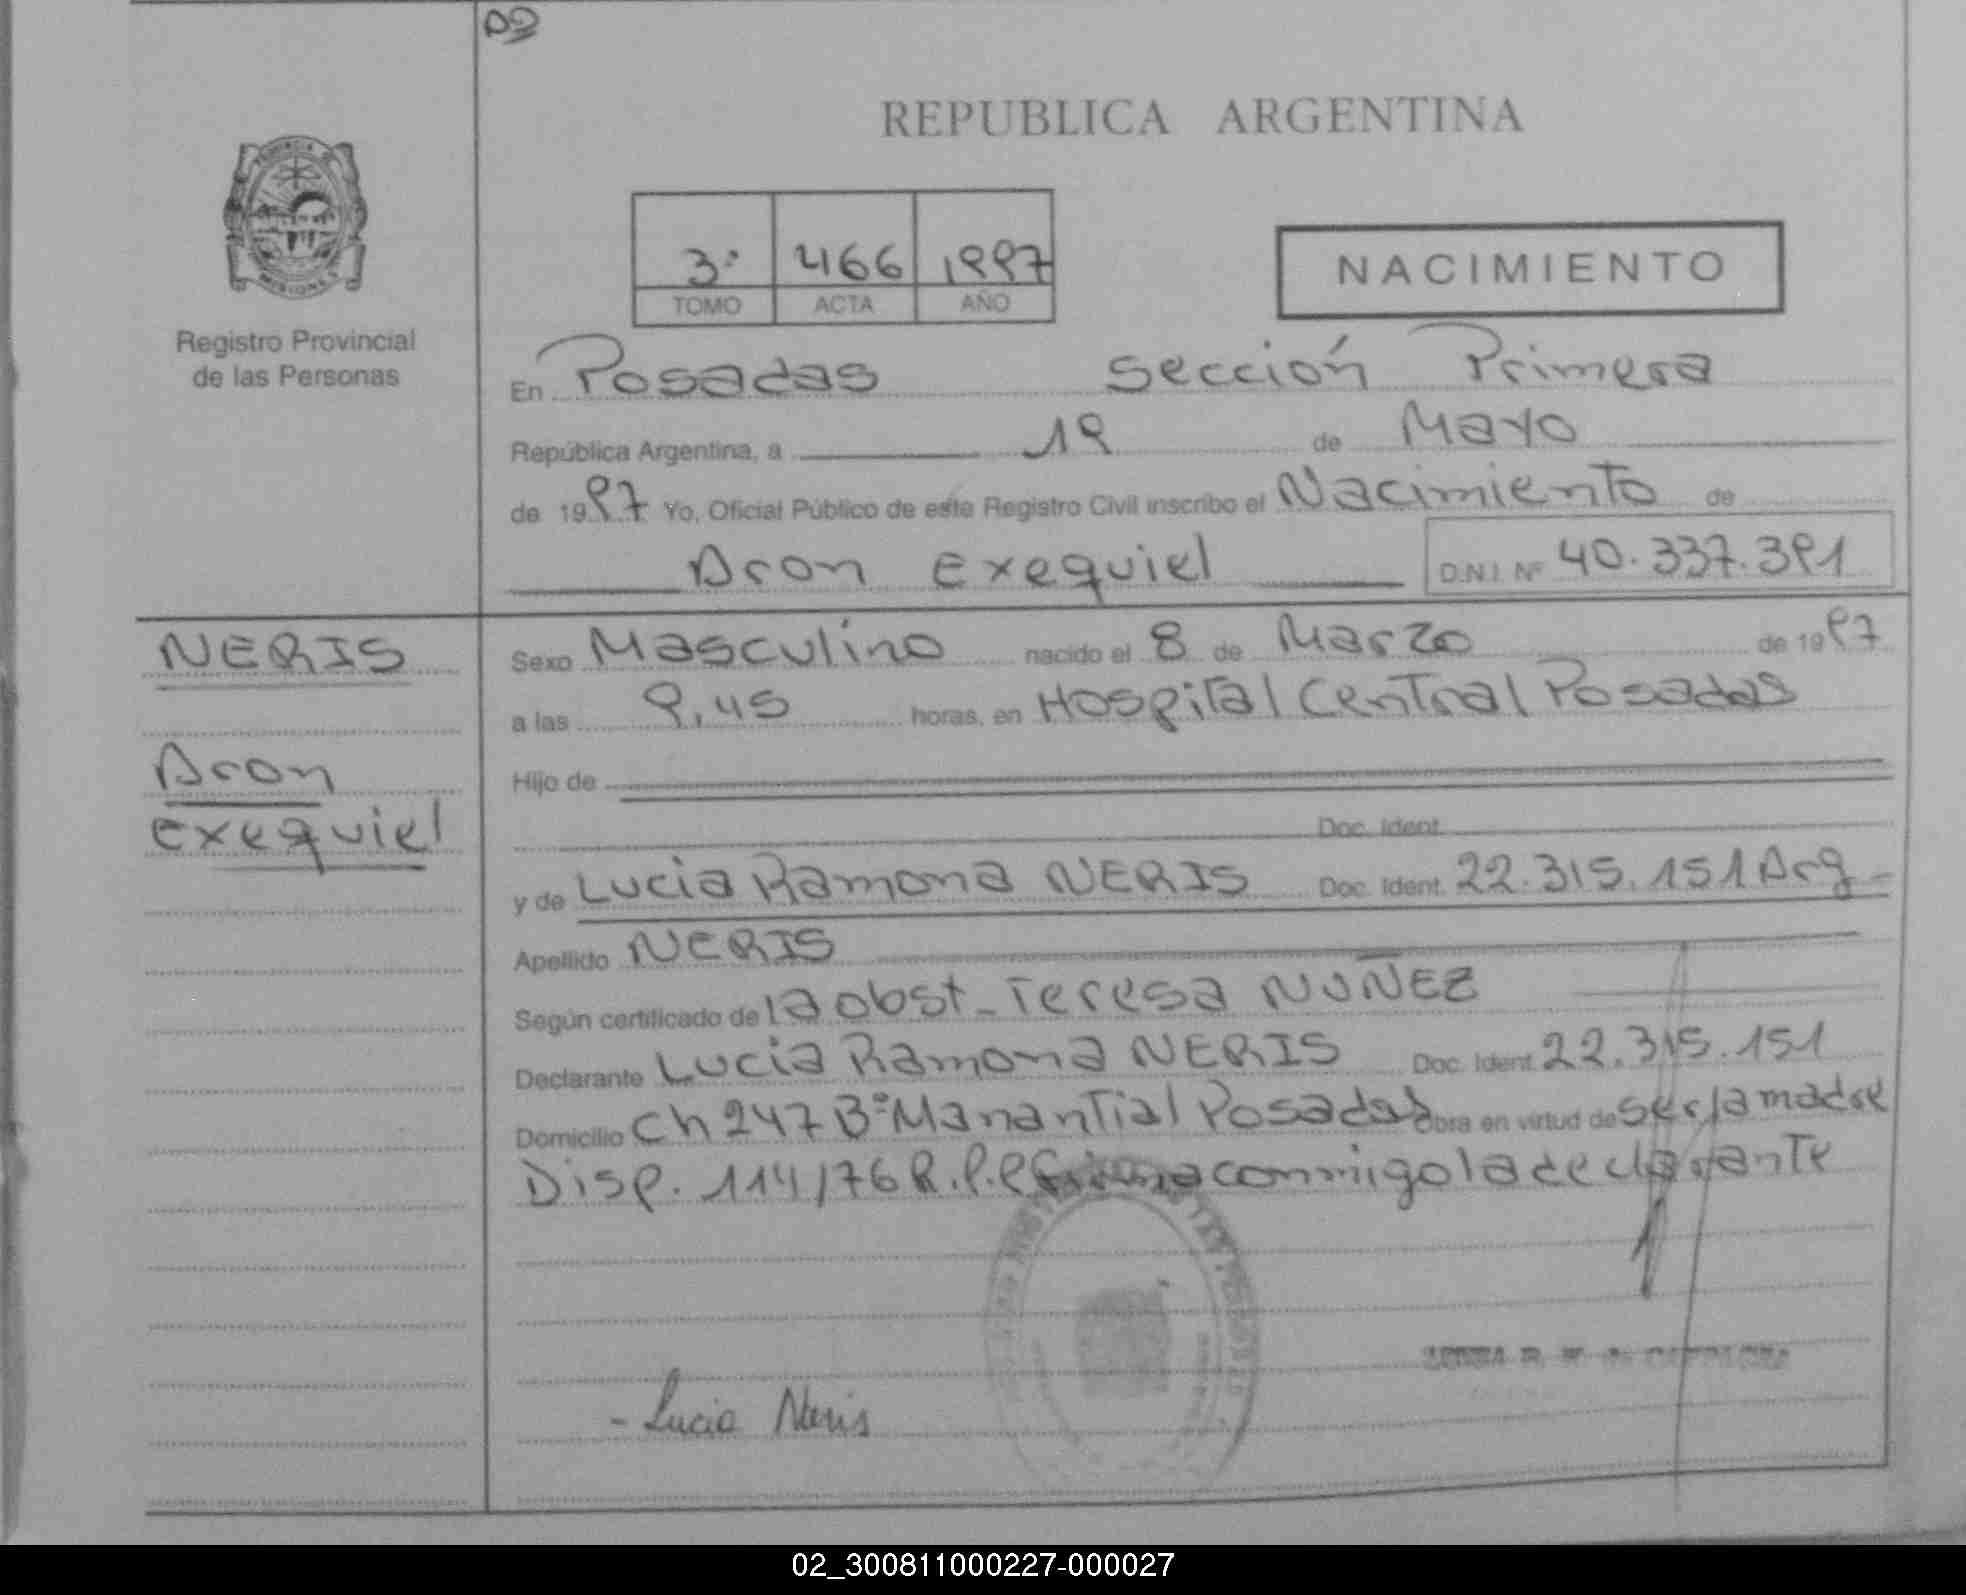 REPUBLICA ARGENTINA
3º 466 1997
TOMO ACTA AÑO
NACIMIENTO
Registro Provincial
de las Personas
En Posadas Sección Primera
República Argentina, a 19 de Mayo
de 1997 Yo, Oficial Público de este Registro Civil inscribo el Nacimiento de
Aron Exequiel D.N.I. Nº 40.337.391
NERIS
Aron
Exequiel
Sexo Masculino nacido el 8 de Marzo de 1997
a las 9,45 horas, en Hospital Central Posadas
Hijo de
Doc. Ident.
y de Lucia Ramona NERIS Doc. Ident. 22.315.151 Arg
Apellido NERIS
Según certificado de la obst. Teresa NUÑEZ
Declarante Lucia Ramona NERIS Doc. Ident. 22.315.151
Domicilio Ch 247 Bº Manantial Posadas Obra en virtud de ser la madre
Disp. 114/76 R.P.P firma conmigo la declarante
- Lucia Neris
02_300811000227-000027